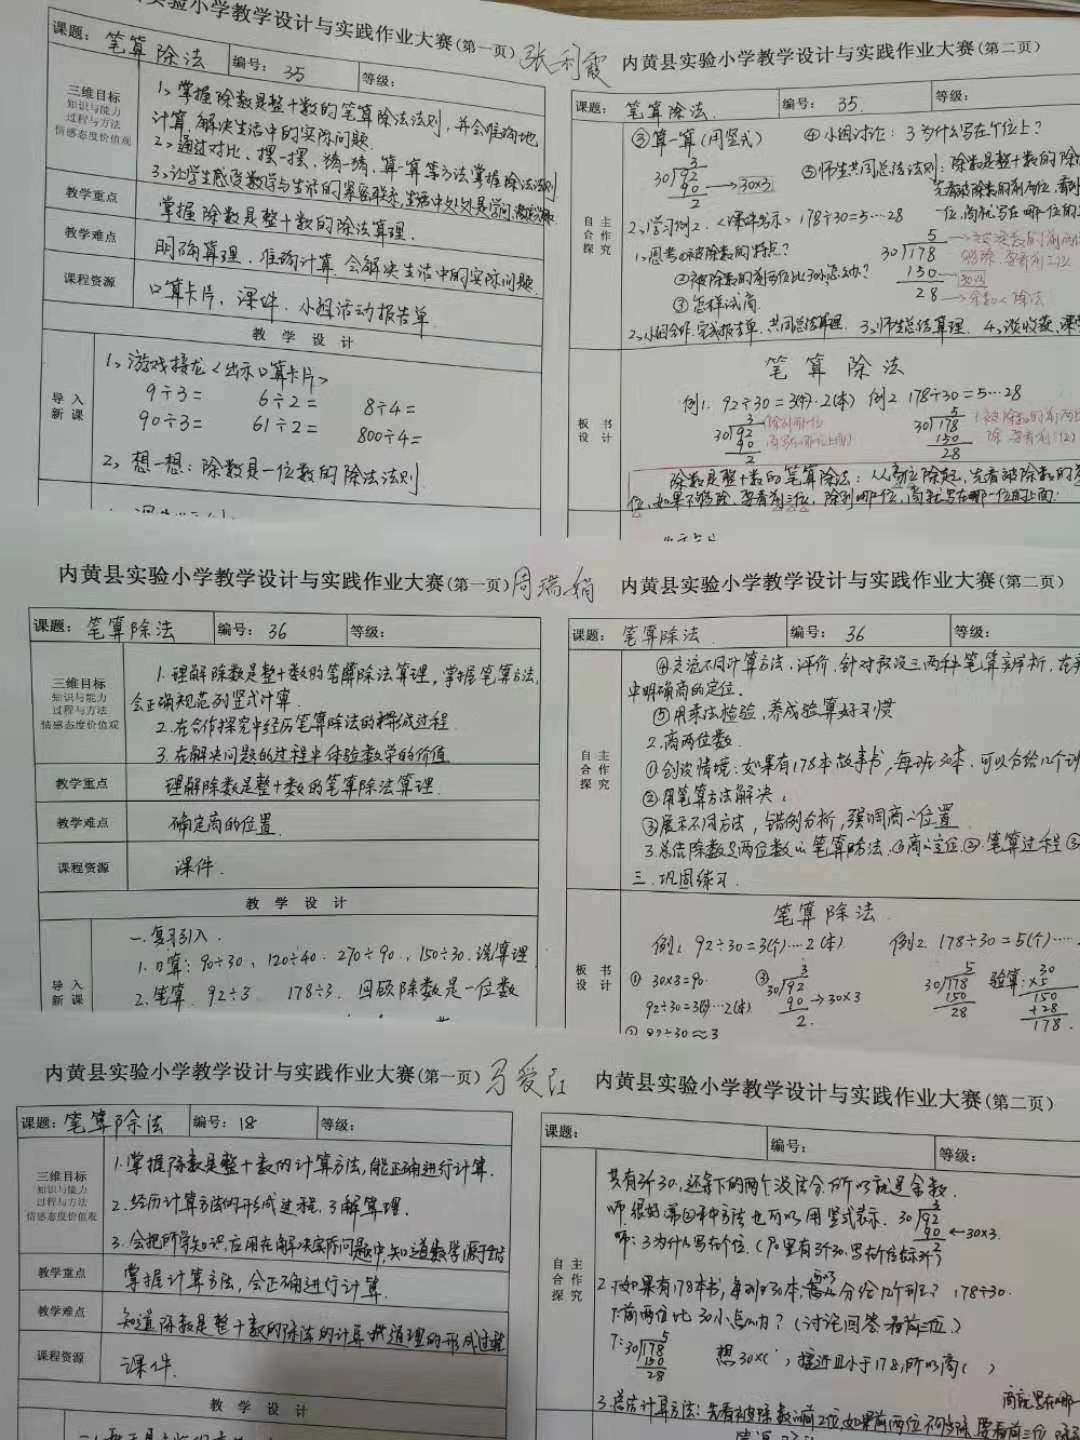 实验小学教学设计与实践作业大赛(第一页) 张利霞
课题: 笔算除法 编号: 35 等级:
三维目标
知识与能力
过程与方法
情感态度价值观
1、掌握除数是整十数的笔算除法法则,并会准确地
计算,解决生活中的实际问题.
2、通过对比、摆一摆、猜一猜、算一算等方法掌握除法法则
3、让学生感受数学与生活的紧密联系,生活中处处是学问
教学重点 掌握除数是整十数的除法算理.
教学难点 明确算理,准确计算,会解决生活中的实际问题.
课程资源 口算卡片、课件、小组活动报告单
教 学 设 计
导入新课
1、游戏接龙<出示口算卡片>
9÷3= 6÷2= 8÷4=
90÷3= 61÷2= 800÷4=
2、想一想:除数是一位数的除法法则
内黄县实验小学教学设计与实践作业大赛(第二页)
课题: 笔算除法. 编号: 35. 等级:
自主合作探究
③算一算(用竖式) ④小组讨论: 3为什么写在个位上?
3
30)92
90 →30×3
2
⑤师生共同总结法则: 除数是整十数的除
先看被除数的前两位,
位,商就写在哪一位的
2、学习例2、<课件出示> 178÷30=5…28
1、思考①被除数的特点?
②被除数的前两位比30小怎么办?
③怎样试商.
5
30)178
150
28 →余数<除法
2、小组合作,完成报告单,共同总结算理. 3、师生总结算理. 4、谈收获,
板书设计
笔 算 除 法
例1. 92÷30=3(个)…2(本) 例2. 178÷30=5…28
3
30)92
90
2
5
30)178
150
28
除数是整十数的笔算除法: 从高位除起,先看被除数的
位,如果不够除,要看前三位,除到哪一位,商就写在哪一位的上面.
内黄县实验小学教学设计与实践作业大赛(第一页) 周瑞娟
课题: 笔算除法 编号: 36 等级:
三维目标
知识与能力
过程与方法
情感态度价值观
1. 理解除数是整十数的笔算除法算理,掌握笔算方法,
会正确规范列竖式计算.
2. 在合作探究中经历笔算除法的形成过程
3. 在解决问题的过程中体验数学的价值
教学重点 理解除数是整十数的笔算除法算理.
教学难点 确定商的位置.
课程资源 课件.
教 学 设 计
导入新课
一.复习引入.
1. 口算: 90÷30、120÷40. 270÷90.、150÷30. 说算理
2. 笔算. 92÷3 178÷3. 回顾除数是一位数
内黄县实验小学教学设计与实践作业大赛(第二页)
课题: 笔算除法. 编号: 36 等级:
自主合作探究
④交流不同计算方法,评价,针对预设三两种笔算辨析,在
中明确商的定位.
⑤用乘法检验,养成验算好习惯
2. 商两位数.
①创设情境: 如果有178本故事书,每班30本,可以分给几个
②用笔算方法解决.
③展示不同方法,错例分析,强调商的位置
3. 总结除数是两位数的笔算方法. ①商的定位②笔算过程③
三. 巩固练习.
板书设计
笔算除法
例1. 92÷30=3(个)…2(本) 例2. 178÷30=5(个)…
① 30×3=90.
92÷30=3(个)…2(本)
② 92÷30≈3
③ 3
30)92
90 →30×3
2.
5
30)178
150
28
验算: 30
×5
150
+28
178.
内黄县实验小学教学设计与实践作业大赛(第一页) 马爱红
课题: 笔算除法 编号: 18 等级:
三维目标
知识与能力
过程与方法
情感态度价值观
1. 掌握除数是整十数的计算方法,能正确进行计算.
2. 经历计算方法的形成过程,了解算理.
3. 会把所学知识,应用在解决实际问题中,知道数学源于生活
教学重点 掌握计算方法,会正确进行计算.
教学难点 知道除数是整十数的除法的计算道理的形成过程
课程资源 课件.
教 学 设 计
内黄县实验小学教学设计与实践作业大赛(第二页)
课题: 编号: 等级:
自主合作探究
共有3个30,还余下的两个没法分,所以就是余数.
师: 很好,第四种方法也可以用竖式表示.
3
30)92
90 ←30×3.
2
师: 3为什么写在个位. (90里有3个30,写在个位表示3个)
2. 如果有178本书,每班30本,可以分给几个班? 178÷30.
下: 前两位比30小怎么办? (讨论回答看前三位.)
5
30)178
150
28
想30×( ),接近且小于178,所以商( )
商就写在哪一
3. 总结计算方法: 先看被除数的前2位,如果前两位不够除,要看前三位,